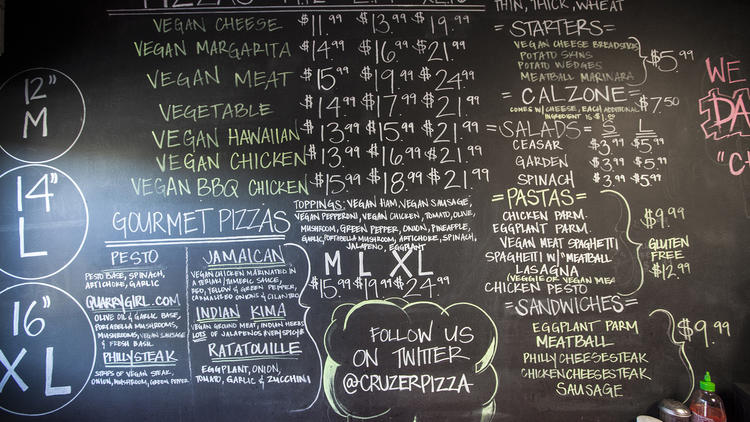 THIN, THICK, WHEAT
VEGAN CHEESE $11.99 $13.99 $19.99
VEGAN MARGARITA $14.99 $16.99 $21.99
VEGAN MEAT $15.99 $19.99 $24.99
VEGETABLE $14.99 $17.99 $21.99
VEGAN HAWAIIAN $13.99 $15.99 $21.99
VEGAN CHICKEN $13.99 $16.99 $21.99
VEGAN BBQ CHICKEN $15.99 $18.99 $21.99
12"
M
14"
L
16"
XL
GOURMET PIZZAS
PESTO
PESTO BASE, SPINACH,
ARTICHOKE, GARLIC
QUARRYGIRL.COM
OLIVE OIL & GARLIC BASE,
PORTABELLA MUSHROOMS,
MUSHROOMS, VEGAN SAUSAGE
& FRESH BASIL
PHILLYSTEAK
STRIPS OF VEGAN STEAK,
ONION, MUSHROOM, GREEN PEPPER
JAMAICAN
VEGAN CHICKEN MARINATED IN
A TERIYAKI/TURMERIC SAUCE,
RED, YELLOW & GREEN PEPPER,
CARMALIZED ONIONS & CILANTRO
INDIAN KIMA
VEGAN GROUND MEAT, INDIAN HERBS
LOTS OF JALAPENOS EVERYSPICY!!
RATATOUILLE
EGGPLANT, ONION,
TOMATO, GARLIC & ZUCCHINI
TOPPINGS: VEGAN HAM, VEGAN SAUSAGE,
VEGAN PEPPERONI, VEGAN CHICKEN, TOMATO, OLIVE,
MUSHROOM, GREEN PEPPER, ONION, PINEAPPLE,
GARLIC, PORTABELLA MUSHROOM, ARTICHOKE, SPINACH,
JALAPENO, EGGPLANT
M L XL
$15.99 $19.99 $24.99
FOLLOW US
ON TWITTER
@CRUZERPIZZA
=STARTERS=
VEGAN CHEESE BREADSTICKS
POTATO SKINS
POTATO WEDGES
MEATBALL MARINARA
$5.99
=CALZONE=
COMES W/CHEESE, EACH ADDITIONAL
INGREDIENT IS $1.00
$7.50
=SALADS= S L
CEASAR $3.99 $5.99
GARDEN $3.99 $5.99
SPINACH $3.99 $5.99
=PASTAS=
CHICKEN PARM.
EGGPLANT PARM.
VEGAN MEAT SPAGHETTI
SPAGHETTI W/"MEATBALL
LASAGNA
(VEGGIE OR VEGAN MEA
CHICKEN PESTO
$9.99
GLUTEN
FREE
$12.99
=SANDWICHES=
EGGPLANT PARM
MEATBALL
PHILLYCHEESESTEAK
CHICKENCHEESESTEAK
SAUSAGE
$9.99
WE
DA
"C